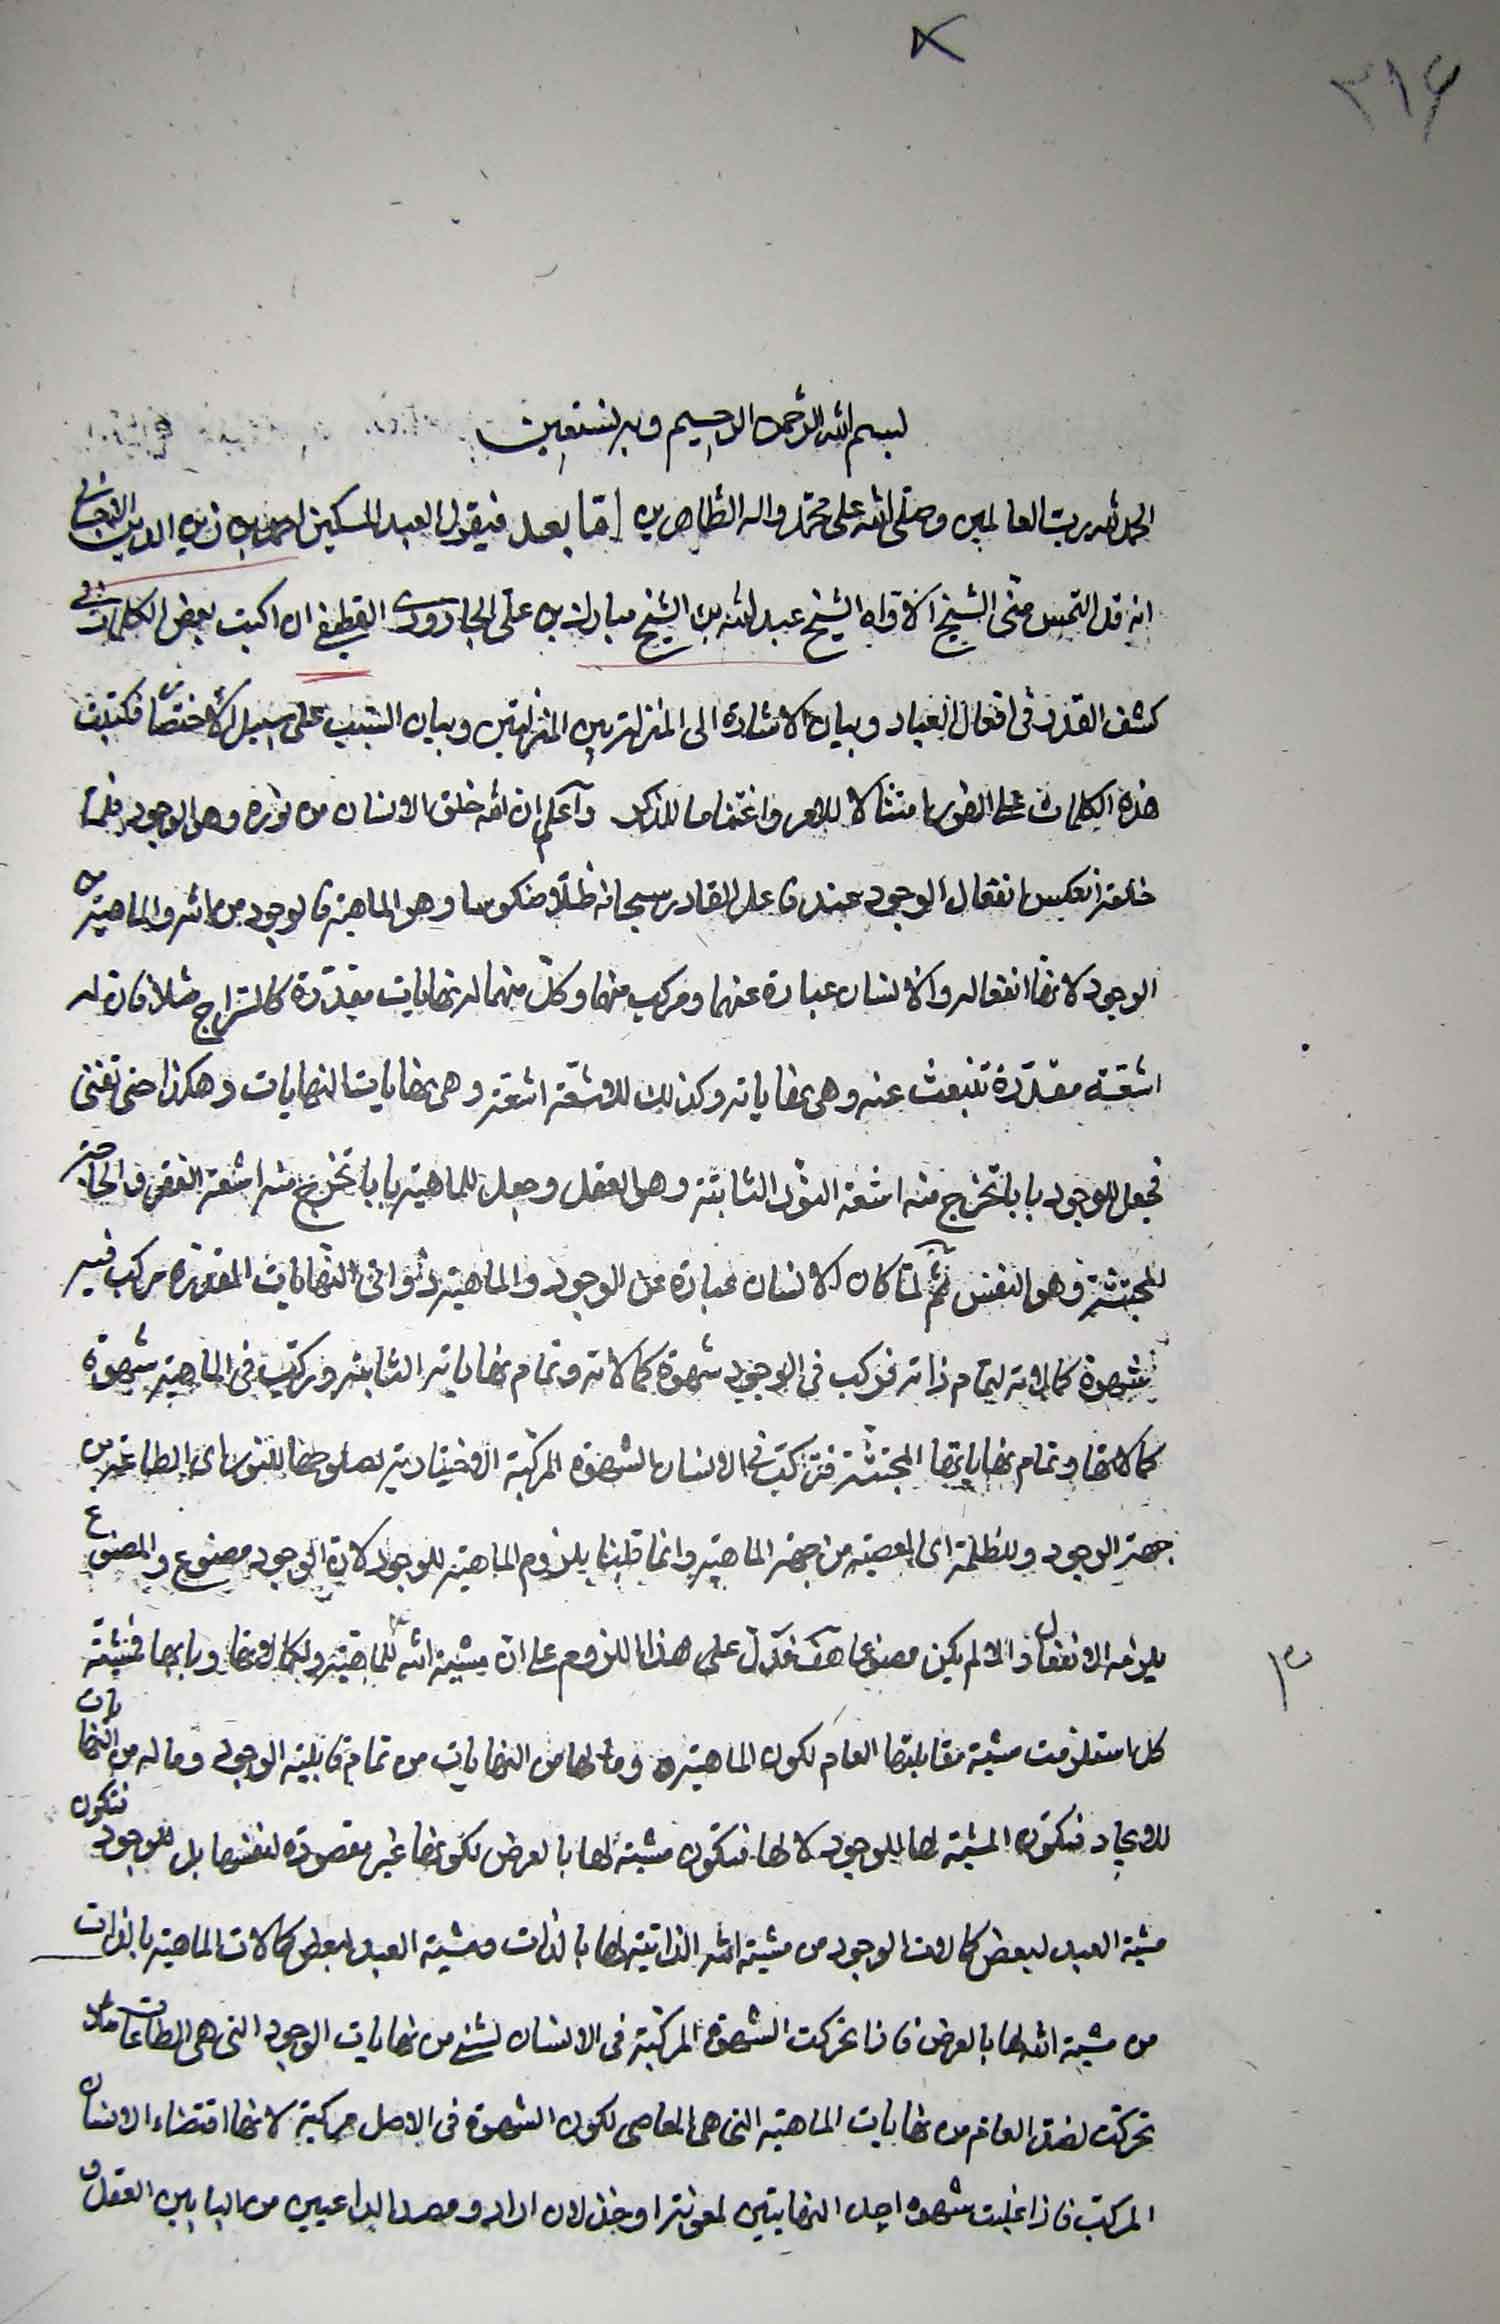 ٣١٤
بسم الله الرحمن الرحيم وبه نستعين
الحمد لله رب العالمين وصلى الله على محمد واله الطاهرين اما بعد فيقول العبد المسكين احمد بن زين الدين الاحسائي
انه قد التمس مني الشيخ الاواه الشيخ عبد الله بن الشيخ مبارك بن علي الجارودي القطيفي ان اكتب بعض الكلمات في
كشف القدر في افعال العباد وبيان الاشارة الى المنزلة بين المنزلتين وبيان السبب على سبيل الاختصار فكتبت
هذه الكلمات على الفور امتثالا للامر واغتناما للذكر واعلم ان الله خلق الانسان من نوره وهو الوجود فلما
خلقه انعكس انفعال الوجود عند فاعل القادر سبحانه ظلا منكوسا وهو الماهية فالوجود من الله والماهية من
الوجود لانها انفعاله والانسان عبارة عنهما ومركب منهما وكل منهما له نهايات مقدرة كالسراج مثلا فان له
اشعة مقدرة تنبعث عنه وهي نهاياته وكذلك للاشعة اشعة وهي نهايات النهايات وهكذا حتى تفنى
فجعل للوجود بابا تخرج منه اشعة النور الثابتة وهو العقل وجعل للماهية بابا تخرج منه اشعة الفقر والحاجة
المجتثة وهو النفس ثم لما كان الانسان عبارة عن الوجود والماهية ذواتي النهايات المقدرة مركب فيه
شهوة كمالاته ليتمام ذاته فركب في الوجود شهوة كمالاته وتمام نهاياته الثابتة وركب في الماهية شهوة
كمالاتها وتمام نهاياتها المجتثة فتركب في الانسان الشهوة المركبة الاختيارية لصلوحها للنور اي الطاعة من
جهة الوجود وللظلمة اي المعصية من جهة الماهية وانما قلنا بلزوم الماهية للوجود لان الوجود مصنوع والمصنوع
يلزمه الانفعال والا لم يكن مصنوعا هف فدل على هذا اللزوم على ان مشية الله للماهية ولكمالاتها وبابها فمشية
كل استلزمت مشية مقابلها العام لكون الماهية وما لها من النهايات من تمام قابلية الوجود وما له من النهايات
للايجاد فتكون المشية لها للوجود لا لها فتكون مشية لها بالعرض لكونها غير مقصودة لنفسها بل للوجود فتكون
مشية العبد لبعض كمالات الوجود من مشية الله الذاتية لها بالذات ومشية العبد لبعض كمالات الماهية بالذات
من مشية الله لها بالعرض فاذا تحركت الشهوة المركبة في الانسان لشيء من نهايات الوجود التي هي الطاعات
تحركت لضده العام من نهايات الماهية التي هي المعاصي لكون الشهوة في الاصل مركبة لانها اقتضاء الانسان
المركب فاذا غلبت شهوة احد النهايتين لمعونة او خذلان اراد ومصدر الداعيين من البابين العقل و
٣